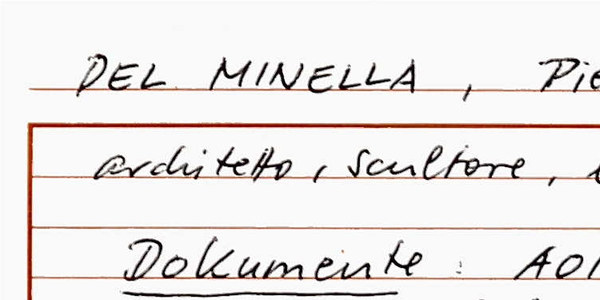 DEL MINELLA, Pie
architetto, scultore,
Dokumente: AOI